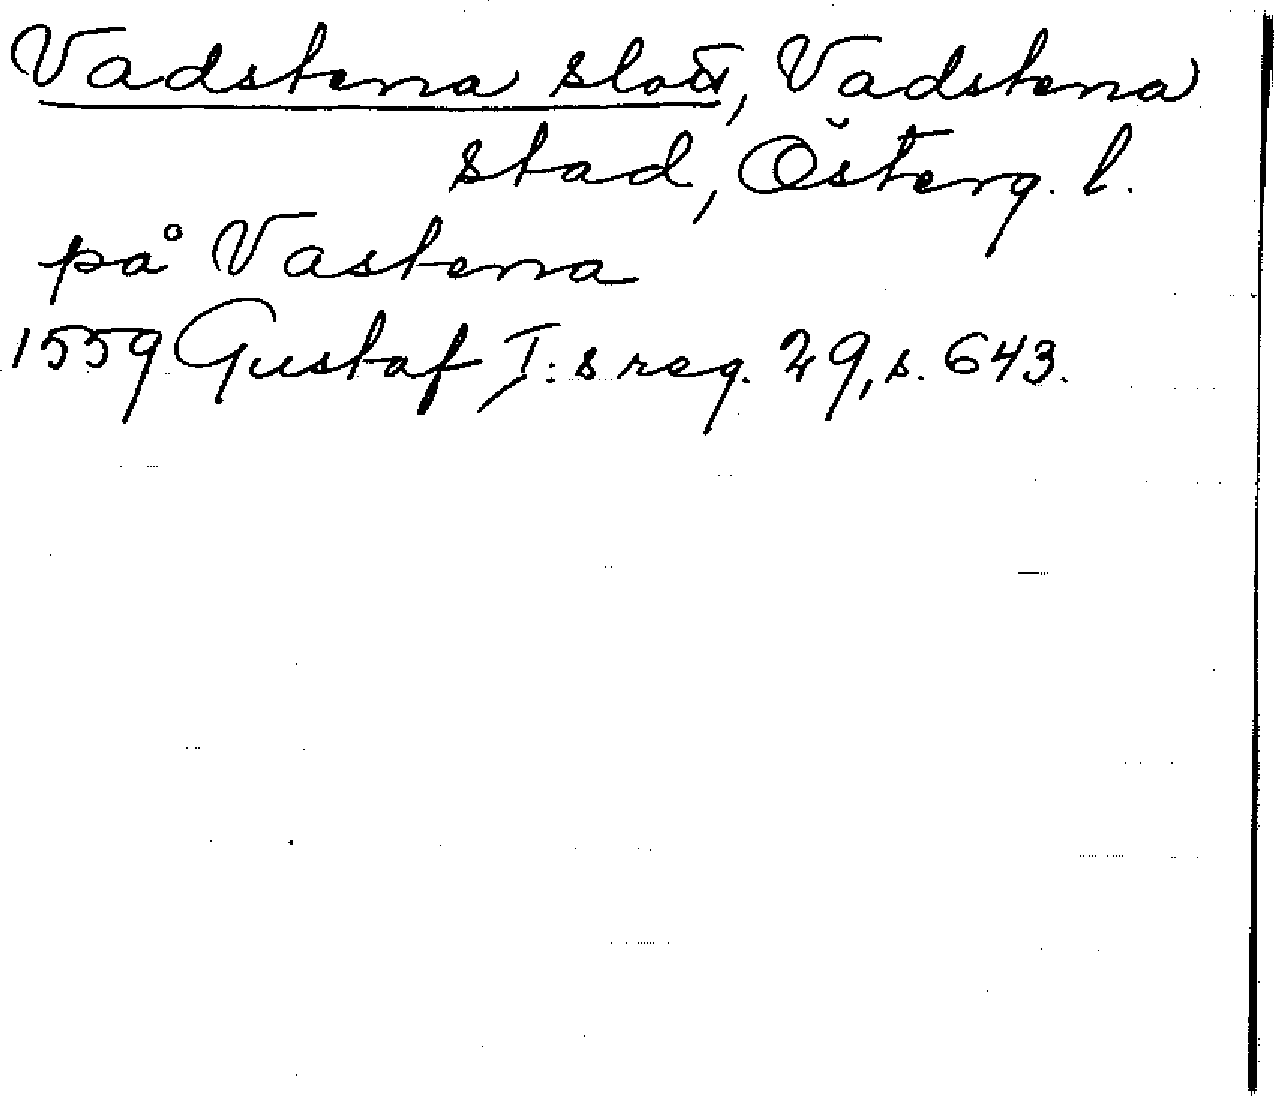 Vadstena slott, Vadstena
stad, Österg. l.
på Vastena
1559 Gustaf I:s reg. 29, s. 643.